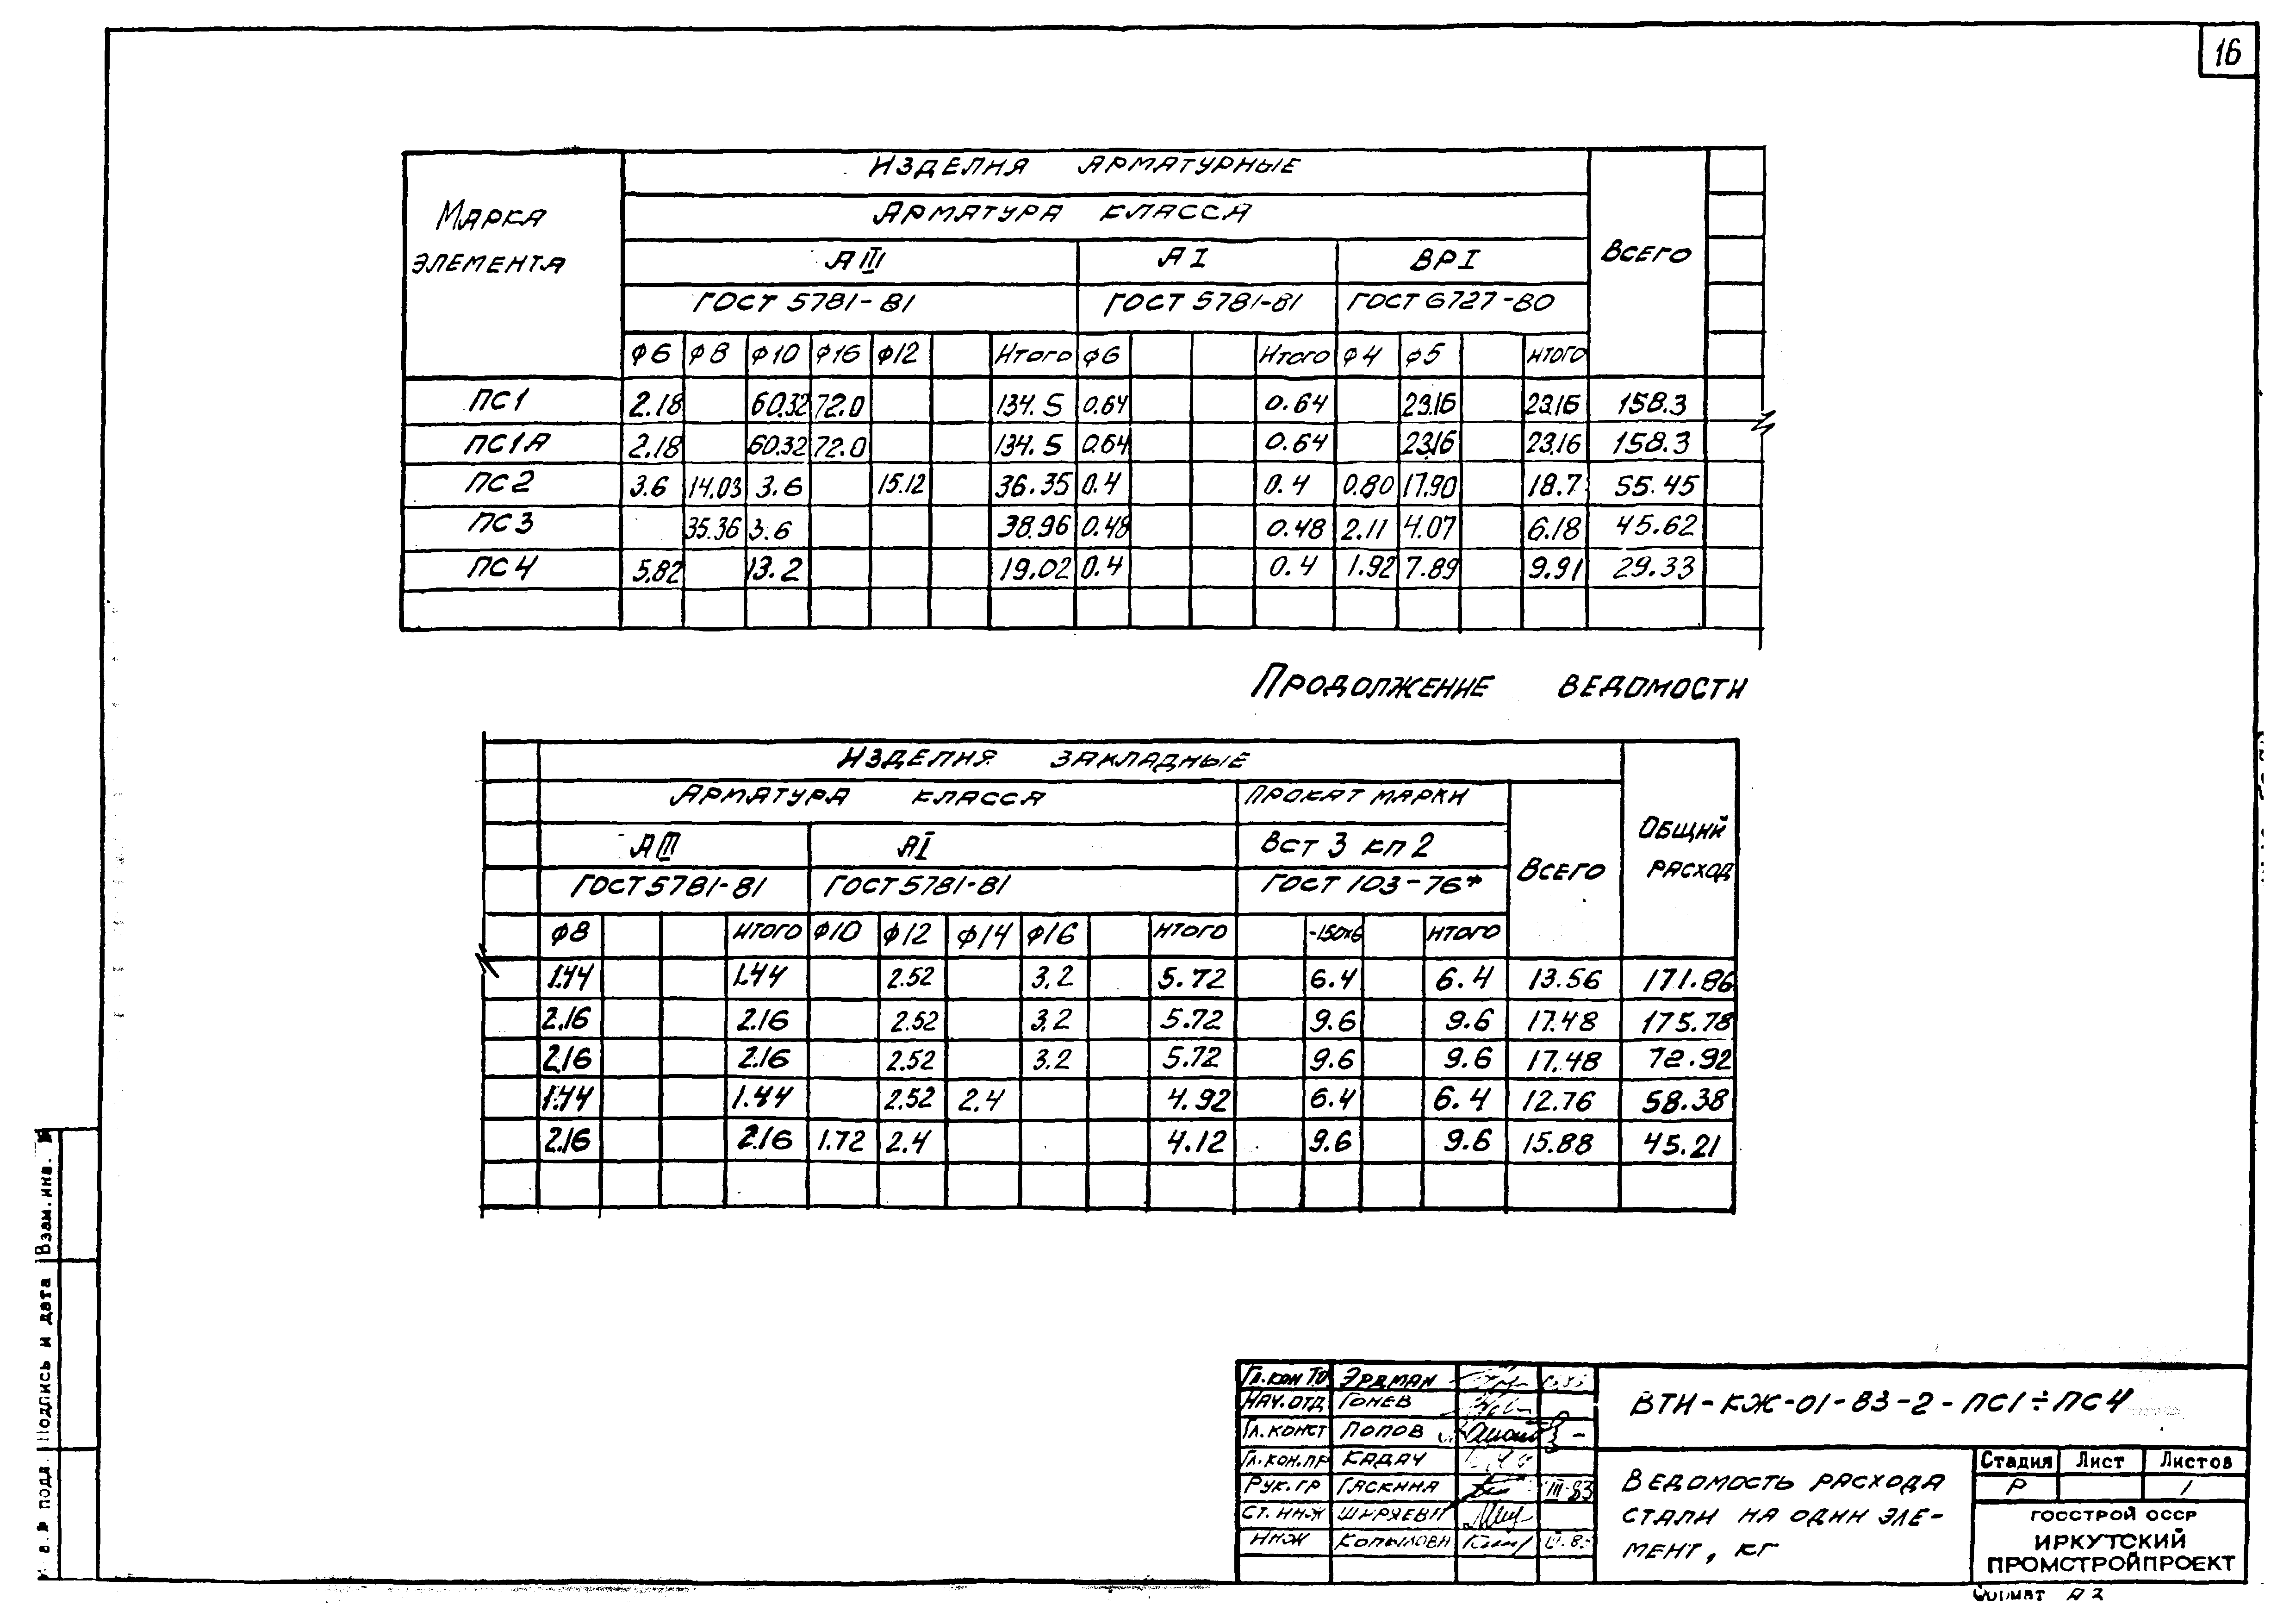 16
Изделия арматурные
Марка элемента
Арматура класса
Всего
А III
А I
ВР I
ГОСТ 5781-81
ГОСТ 5781-81
ГОСТ 6727-80
ф6 ф8 ф10 ф16 ф12 Итого ф6 Итого ф4 ф5 итого
ПС1 2.18 60.32 72.0 134.5 0.64 0.64 23.16 23.16 158.3
ПС1А 2.18 60.32 72.0 134.5 0.64 0.64 23.16 23.16 158.3
ПС2 3.6 14.03 3.6 15.12 36.35 0.4 0.4 0.80 17.90 18.7 55.45
ПС3 35.36 3.6 38.96 0.48 0.48 2.11 4.07 6.18 45.62
ПС4 5.82 13.2 19.02 0.4 0.4 1.92 7.89 9.91 29.33
Продолжение ведомости
Изделия закладные
Арматура класса
Прокат марки
Общий расход
А III
А I
Вст 3 кп 2
Всего
ГОСТ 5781-81
ГОСТ 5781-81
ГОСТ 103-76*
ф8 итого ф10 ф12 ф14 ф16 итого -150х6 итого
1.44 1.44 2.52 3.2 5.72 6.4 6.4 13.56 171.86
2.16 2.16 2.52 3.2 5.72 9.6 9.6 17.48 175.78
2.16 2.16 2.52 3.2 5.72 9.6 9.6 17.48 72.92
1.44 1.44 2.52 2.4 4.92 6.4 6.4 12.76 58.38
2.16 2.16 1.72 2.4 4.12 9.6 9.6 15.88 45.21
Взам. инв.
Подпись и дата
подл.
Гл. кон ТО Эрдман
Нач. отд Гонев
Гл. конст Попов
Гл. кон. пр Кадач
Рук. гр Гаскина III-83
Ст. инж Ширяева
Инж Копылова
ВТИ-КЖ-01-83-2-ПС1÷ПС4
Ведомость расхода
стали на один эле-
мент, кг
Стадия Лист Листов
Р 1
ГОССТРОЙ СССР
ИРКУТСКИЙ
ПРОМСТРОЙПРОЕКТ
Формат А3